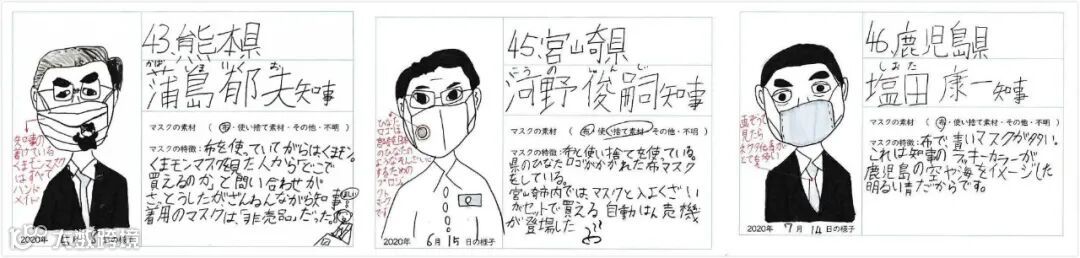 43.熊本県
かば しま いく お
蒲島郁夫知事
マスクの素材 （布・使い捨て素材・その他・不明）
マスクの特徴：布を使っていてがらはくまモン。
くまモンマスクを見た人からどこで
買えるのか？と問い合わせが
さっとうしたがざんねんながら知事
着用のマスクは、「非売品」だった。
ほしい
知事の
着けている
くまモンマスク
は
ハンド
メイド
2020年
日の様子
45.宮崎県
こうの しゅんじ
河野俊嗣知事
マスクの素材 （布・使い捨て素材・その他・不明）
マスクの特徴：布と使い捨てを使っている。
県のひなたロゴがかかれた布マスク
をしている。
宮崎市内では、マスクと入よくざい
がセットで買える自動はん売機
が登場した
ひなた
ロゴは
2020年 6月 15日の様子
46.鹿児島県
しおた
塩田康一知事
マスクの素材 （布・使い捨て素材・その他・不明）
マスクの特徴：布で、青いマスクが多い。
これは知事のラッキーカラーが
鹿児島の空や海をイメージした
明るい青だからです。
2020年 7月 14日の様子